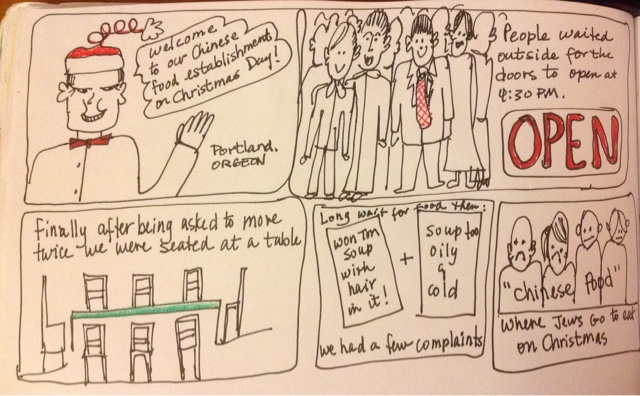 Welcome
to our Chinese
food establishment
on Christmas Day!
Portland,
OREGON
People waited
outside for the
doors to open at
4:30 PM.
OPEN
Finally after being asked to more
twice we were seated at a table
Long wait for food then:
won Tm
soup
with
hair
in it!
+
soup too
oily
&
cold
we had a few complaints
"Chinese food"
where Jews Go to eat
on Christmas